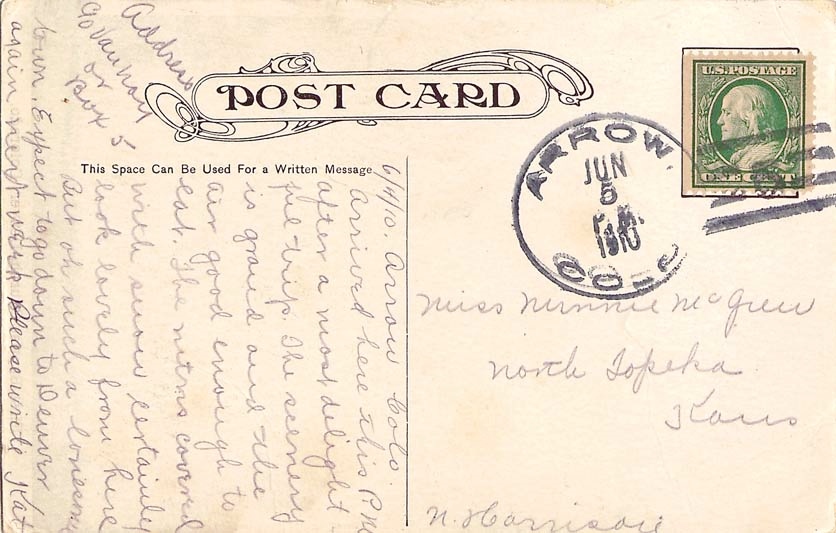 POST CARD
This Space Can Be Used For a Written Message
U.S. POSTAGE
ONE CENT
ARROW.
JUN
5
P.M.
1910
COLO
Miss Minnie McGrew
North Topeka
Kans
N. Harrison
6/4/10. Arrow Colo.
Arrived here this P.M.
after a most delight
ful trip. The scenery
is grand and the
air good enough to
eat. The mtns covered
with snow certainly
look lovely from here
But oh such a lonesome
town. Expect to go down to Denver
again next week Please write Kat
Address
or
Box 5